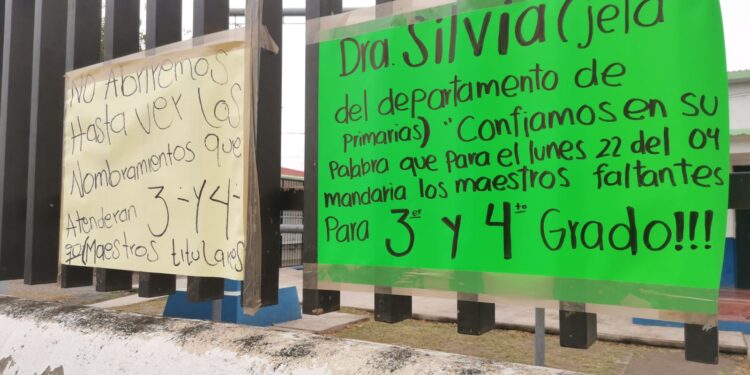 No Abriremos
Hasta ver los
Nombramientos que
Atenderan 3- y 4-
(Maestros titulares
Dra. Silvia (jefa
del departamento de
primarias) "Confiamos en su
Palabra que para el lunes 22 del 04
mandaria los maestros faltantes
Para 3er y 4to Grado!!!